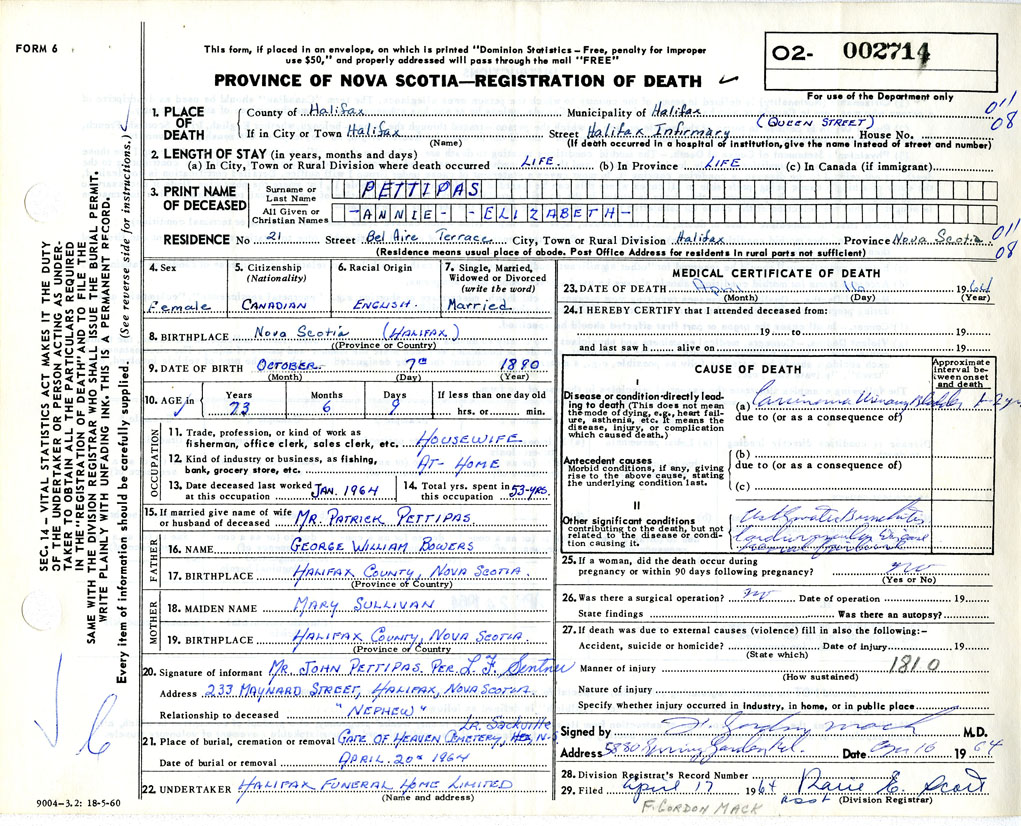 FORM 6
This form, if placed in an envelope, on which is printed "Dominion Statistics – Free, penalty for improper
use $50," and properly addressed will pass through the mail "FREE"
PROVINCE OF NOVA SCOTIA—REGISTRATION OF DEATH
02- 002714
For use of the Department only
011
08
1. PLACE OF DEATH
County of Halifax Municipality of Halifax
(QUEEN STREET)
If in City or Town Halifax Street Halifax Infirmary House No.
(Name) (If death occurred in a hospital or institution, give the name instead of street and number)
2. LENGTH OF STAY (in years, months and days)
(a) In City, Town or Rural Division where death occurred LIFE. (b) In Province LIFE. (c) In Canada (if immigrant)
3. PRINT NAME OF DECEASED
Surname or Last Name PETTIPAS
All Given or Christian Names -ANNIE--ELIZABETH-
RESIDENCE No 21 Street Bel Aire Terrace City, Town or Rural Division Halifax Province Nova Scotia
(Residence means usual place of abode. Post Office Address for residents in rural parts not sufficient)
011
08
4. Sex
Female
5. Citizenship (Nationality)
CANADIAN
6. Racial Origin
ENGLISH.
7. Single, Married, Widowed or Divorced (write the word)
Married
8. BIRTHPLACE Nova Scotia (HALIFAX)
((Province or Country)
9. DATE OF BIRTH OCTOBER 7th 1890
(Month) (Day) (Year)
10. AGE in Years Months Days If less than one day old
73 6 9 hrs. or min.
OCCUPATION
11. Trade, profession, or kind of work as
fisherman, office clerk, sales clerk, etc. HOUSEWIFE
12. Kind of industry or business, as fishing,
bank, grocery store, etc. AT-HOME
13. Date deceased last worked at this occupation JAN. 1964
14. Total yrs. spent in this occupation 53-YRS.
15. If married give name of wife
or husband of deceased MR. PATRICK PETTIPAS.
FATHER
16. NAME GEORGE WILLIAM BOWERS
17. BIRTHPLACE HALIFAX COUNTY, NOVA SCOTIA.
(Province of Country)
MOTHER
18. MAIDEN NAME MARY SULLIVAN
19. BIRTHPLACE HALIFAX COUNTY, NOVA SCOTIA
(Province or Country)
20. Signature of informant MR. JOHN PETTIPAS. PER. L. F. Sentner
Address 233 MAYNARD STREET, HALIFAX, NOVA SCOTIA.
Relationship to deceased "NEPHEW"
LR. Sackville
21. Place of burial, cremation or removal GATE OF HEAVEN CEMETERY, HFX, N.S.
Date of burial or removal APRIL. 20th 1964
22. UNDERTAKER HALIFAX FUNERAL HOME LIMITED
(Name and address)
9004-3.2: 18-5-60
MEDICAL CERTIFICATE OF DEATH
23. DATE OF DEATH April 16 1964
(Month) (Day) (Year)
24. I HEREBY CERTIFY that I attended deceased from:
19 to 19
and last saw h alive on 19
CAUSE OF DEATH
Approximate interval between onset and death
I
Disease or condition directly leading to death (This does not mean the mode of dying, e.g., heart failure, asthenia, etc. It means the disease, injury, or complication which caused death.)
(a) Carcinoma Urinary Bladder + 2 yrs
due to (or as a consequence of)
Antecedent causes
Morbid conditions, if any, giving rise to the above cause, stating the underlying condition last.
(b)
due to (or as a consequence of)
(c)
II
Other significant conditions
contributing to the death, but not related to the disease or condition causing it.
25. If a woman, did the death occur during
pregnancy or within 90 days following pregnancy? no
(Yes or No)
26. Was there a surgical operation? no Date of operation 19
State findings Was there an autopsy?
27. If death was due to external causes (violence) fill in also the following:–
Accident, suicide or homicide? Date of injury 19
(State which)
Manner of injury 1810
(How sustained)
Nature of injury
Specify whether injury occurred in industry, in home, or in public place
Signed by F. Gordon Mack M.D.
Address 5880 Spring Garden Rd. Date Apr 16 1964
28. Division Registrar's Record Number
29. Filed April 17 1964 Marie E. Scott
Asst (Division Registrar)
F. GORDON MACK
SEC. 14 – VITAL STATISTICS ACT MAKES IT THE DUTY
OF THE UNDERTAKER OR PERSON ACTING AS UNDER-
TAKER TO OBTAIN ALL THE PARTICULARS REQUIRED
IN THE "REGISTRATION OF DEATH" AND TO FILE THE
SAME WITH THE DIVISION REGISTRAR WHO SHALL ISSUE THE BURIAL PERMIT.
WRITE PLAINLY WITH UNFADING INK. THIS IS A PERMANENT RECORD.
Every item of information should be carefully supplied. (See reverse side for instructions.)
6